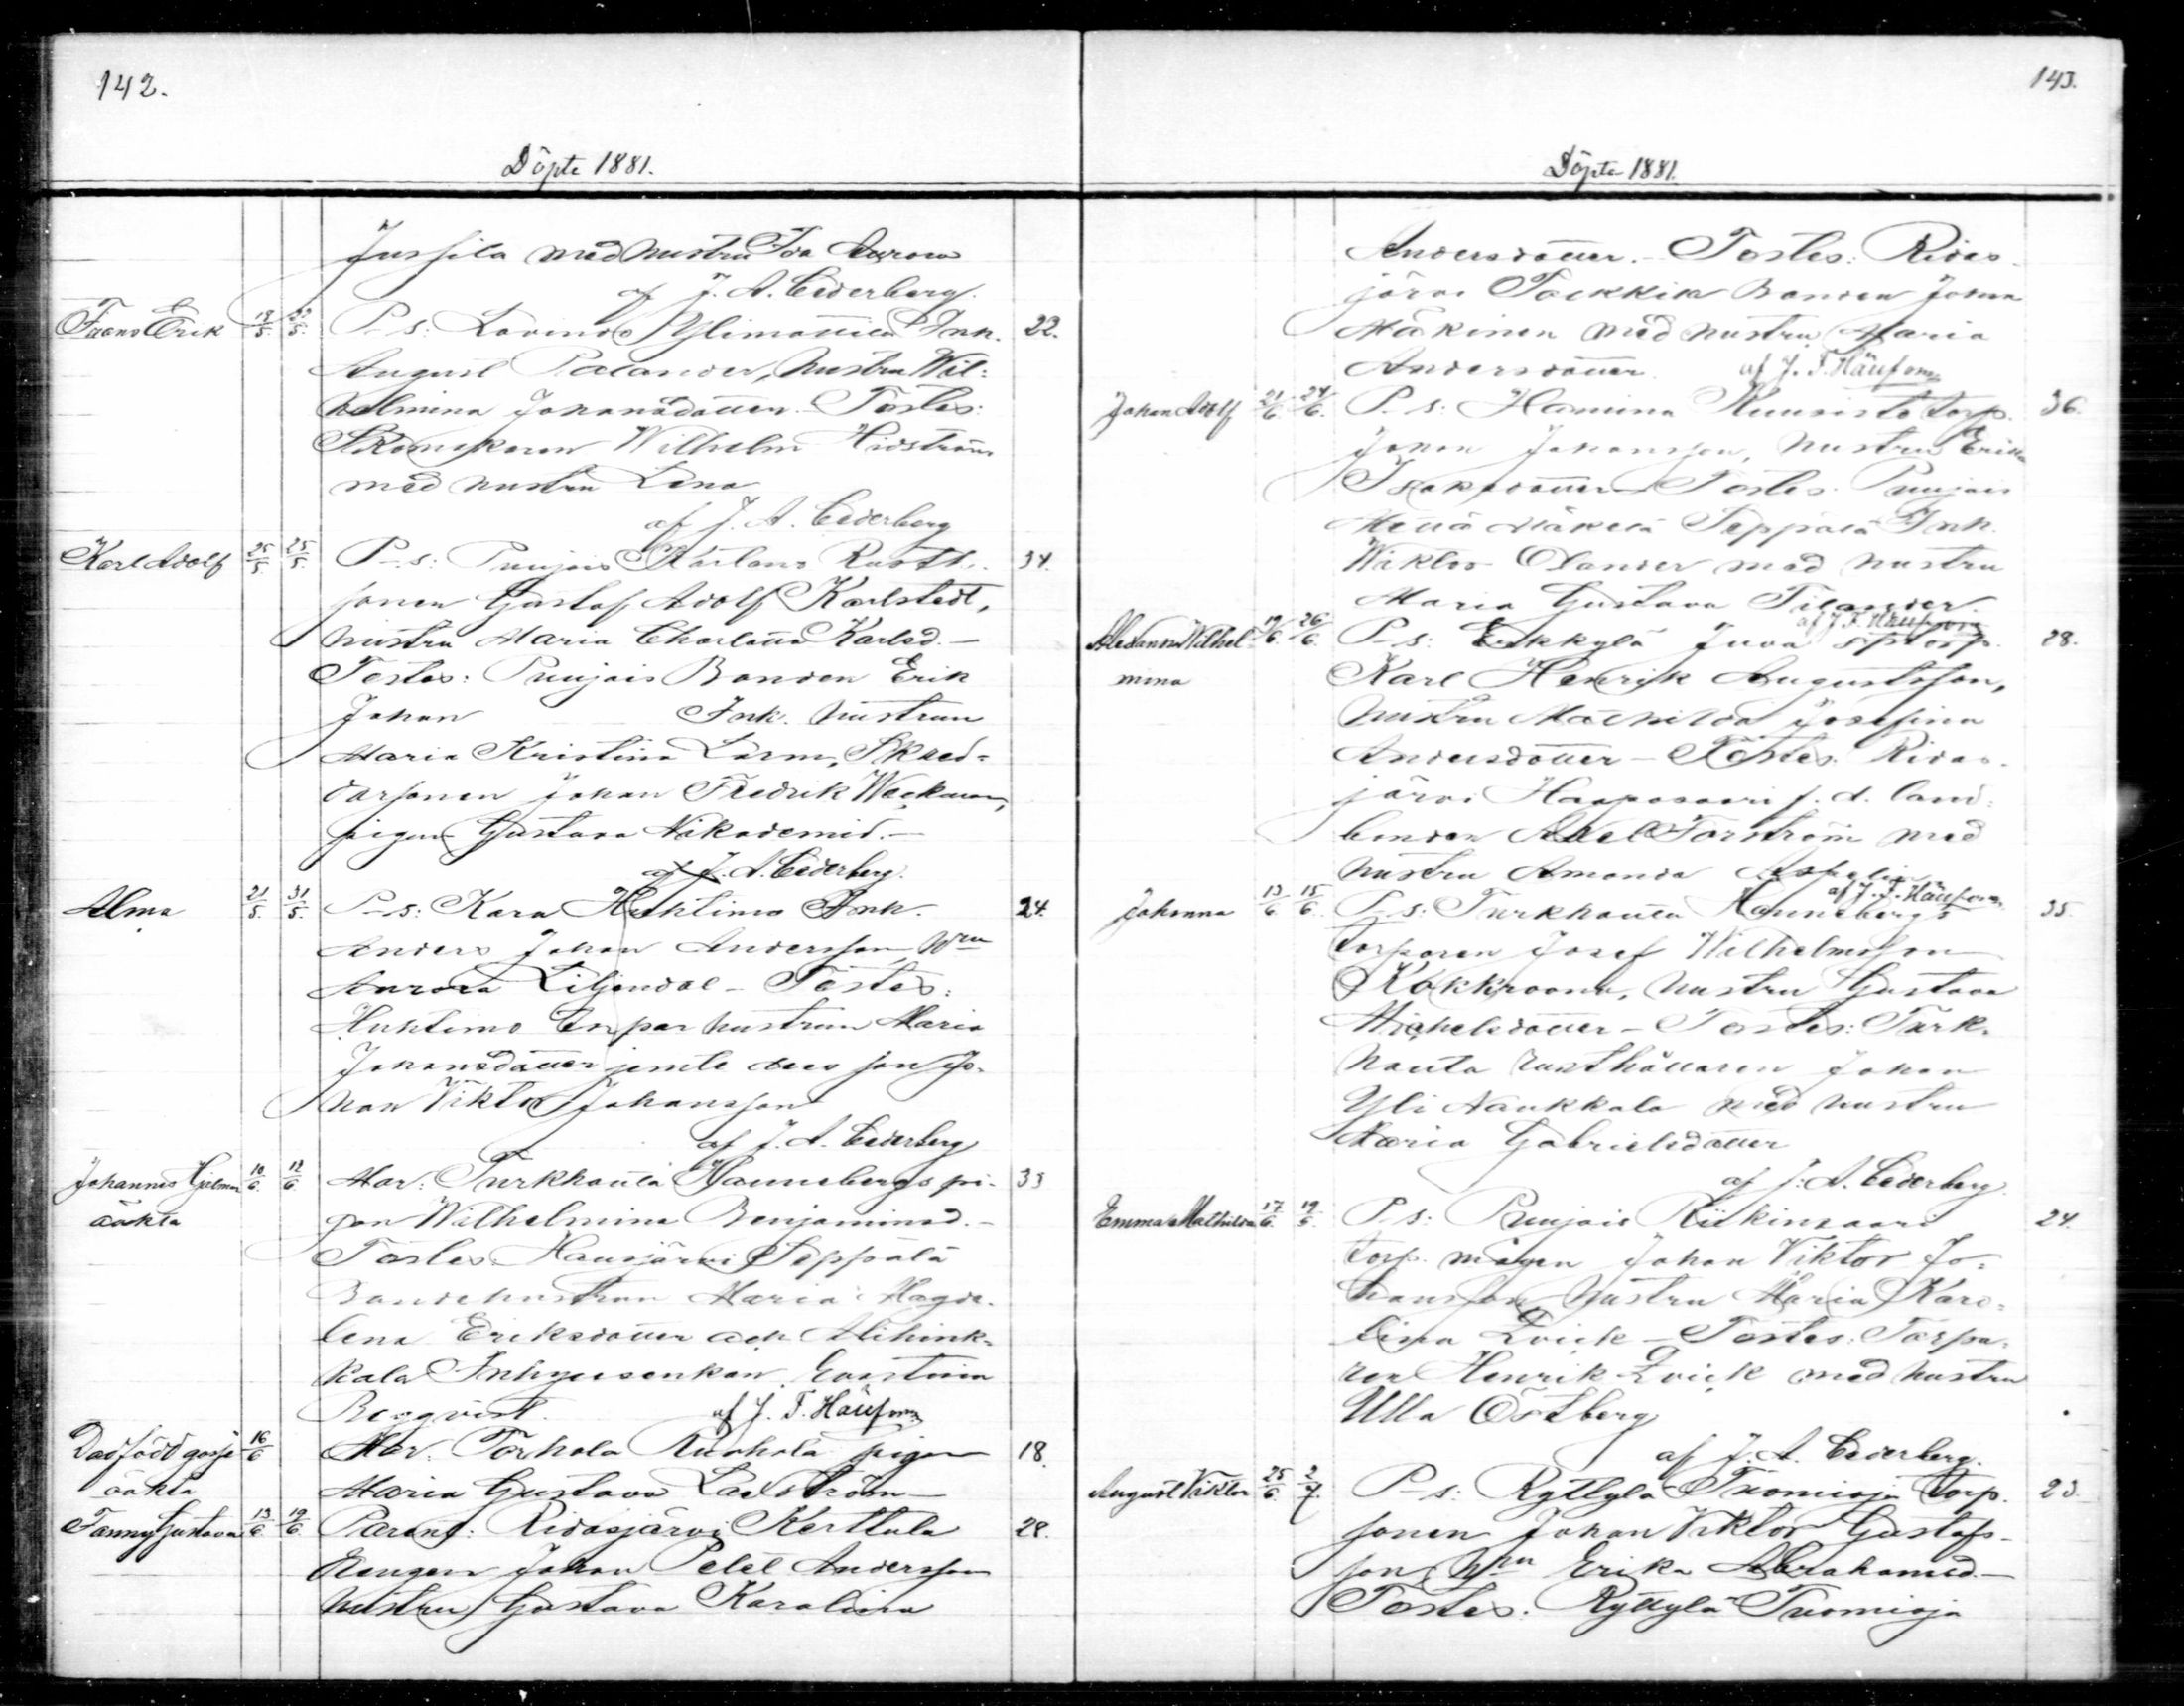 142.
Döpte 1881.
Jussila med hustru Ida Aurora
af J. A. Cederberg.
Frans Erik 18/5. 22/5. P-s: Lavinto Ylimattila Inh. 22.
August Palander, hustru Wil=
helmina Johansdotter. Testes:
Skomakaren Wilhelm Hidström
med hustru Lena
af J. A. Cederberg
Karl Adolf 25/5 25/5. P-s: Puujais Rustth. 34.
sonen Gustaf Adolf Karlstedt,
hustru Maria Charlotta Karlsd. -
Testes: Puujais Bonden Erik
Johan Inh. hustrun
Maria Kristina Lärm, Skräd=
darsonen Johan Fredrik Weckman,
pigan Gustava Nikodemid. -
af J. A. Cederberg.
Alma 21/5. 31/5. P-s: Kara Huhtimo Inh. 24.
Anders Johan Andersson, Hru
Aurora Liljendal - Testes:
Huhtimo torpar hustrun Maria
Johansdotter jemte dess son Jo-
han Viktor Johansson
af J. A. Cederberg
Johannes Hjalmar 10/6. 12/6. Mor: Turkhauta Hannebergs pi- 33
oäkta gan Wilhelmina Benjaminsd. -
Testes Hausjärvi Seppälä
Bondehustrun Maria Magda-
lena Eriksdotter och Alihink-
kala Inhysesenkan Eva Stina
Bergqvist. af J. F. Häufom
Dödfödd gosse 16/6 Mor: Torhola Ruohola pigan 18.
oäkta Maria Gustava Ladström -
Fanny Gustava 13/6 19/6. Parent: Ridasjärvi Kerttula 28.
Drängen Johan Petel Andersson
hustru Gustava Karolina
143.
Döpte 1881.
Andersdotter. - Testes: Ridas-
järvi Bonden Johan
Mäkinen med hustru Maria
Andersdotter. af J. F. Häufom
Johan Adolf 21/6. 24/6. P-s: Hamina Kuusisto torp. 36.
Johan Johansson, hustru Erika
Isaksdotter - Testes: Puujais
Mäkelä Seppälä Inh.
Wiktor Olander med hustru
Maria Gustava Tilander.
af J. F. Häufom
Alexandra Wilhel- 19/6. 26/6. P-s: Erkkylä Juva 28.
mina Karl Henrik Augustsson,
hustru Mathilda Josefina
Andersdotter - Testes. Ridas-
järvi Haaposaari f. d. land=
bonden Axel Forström med
hustru Amanda Aspelin
af J. F. Häufom
Johanna 13/6 15/6. P-s: Turkhauta Hannebergs 35
torparen Josef Wilhelmsson
Kokkroona, hustru Gustava
Michelsdotter - Testes: Turk-
hauta rusthållaren Johan
Yli Naukkala med hustru
Maria Gabrielsdotter
af J. A. Cederberg.
Emma Mathilda 17/6. 19/6. P-s: Puujais Riikinsaari 24.
torp. mågen Johan Viktor Jo=
hansson hustru Maria Karo=
lina Qvick - Testes: Torpa-
ren Henrik Qvick med hustru
Ulla Östberg
af J. A. Cederberg.
August Viktor 25/6. 2/7. P-s: Ryttylä Tuomioja torp. 23.
sonen Johan Viktor Gustafs-
son, Hru Erika Abrahamsd. -
Testes: Ryttylä Tuomioja